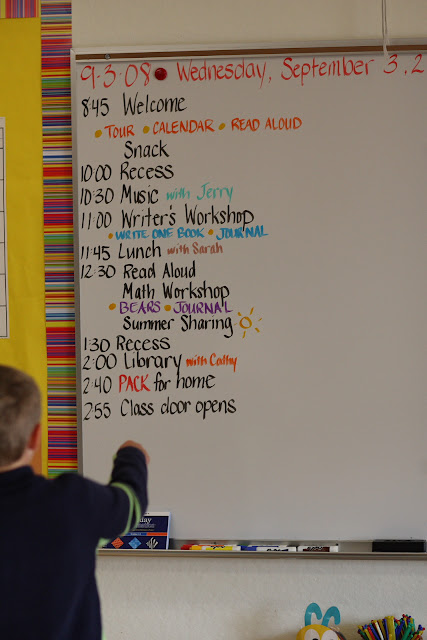 9-3-08 • Wednesday, September 3, 2
8:45 Welcome
• TOUR • CALENDAR • READ ALOUD
Snack
10:00 Recess
10:30 Music with Jerry
11:00 Writer's Workshop
• WRITE ONE BOOK • JOURNAL
11:45 Lunch with Sarah
12:30 Read Aloud
Math Workshop
• BEARS • JOURNAL
Summer Sharing
1:30 Recess
2:00 Library with Cathy
2:40 PACK for home
2:55 Class door opens